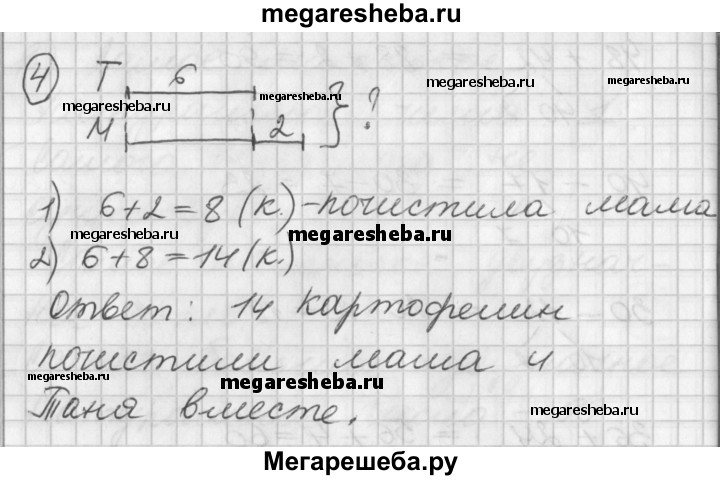 megaresheba.ru
④ Т 6
megaresheba.ru megaresheba.ru megaresheba.ru megaresheba.ru
М 2 } ?
1) 6+2=8 (к.) - почистила мама
megaresheba.ru megaresheba.ru megaresheba.ru
2) 6+8=14 (к.)
Ответ: 14 картофелин
почистили мама и
megaresheba.ru megaresheba.ru megaresheba.ru
Таня вместе.
Мегарешеба.ру